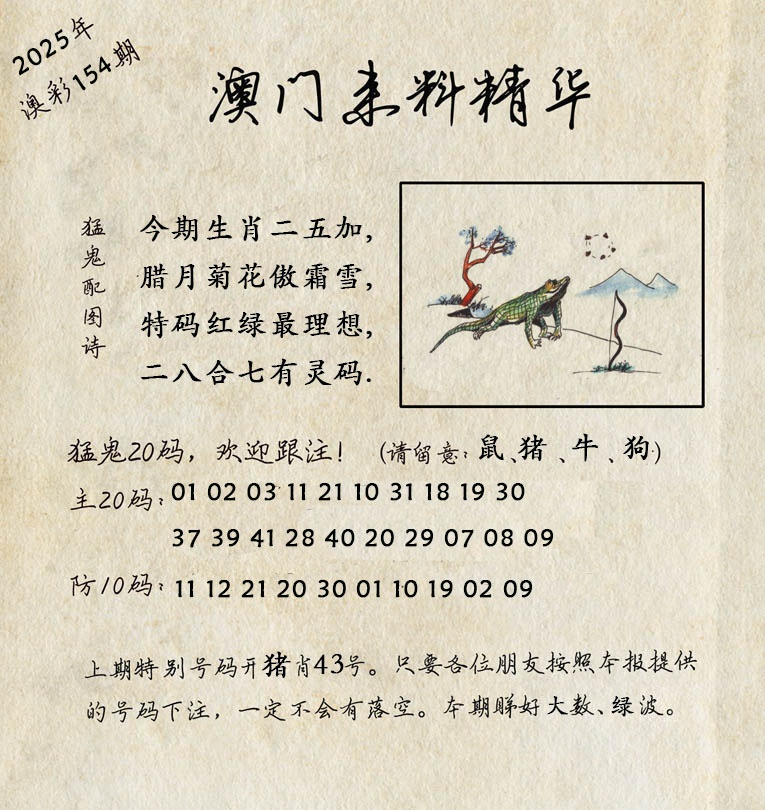 2025年
澳彩154期
澳门来料精华
猛鬼配图诗
今期生肖二五加,
腊月菊花傲霜雪,
特码红绿最理想,
二八合七有灵码.
猛鬼20码，欢迎跟注！（请留意：鼠、猪、牛、狗）
主20码：01 02 03 11 21 10 31 18 19 30
37 39 41 28 40 20 29 07 08 09
防10码：11 12 21 20 30 01 10 19 02 09
上期特别号码开猪肖43号。只要各位朋友按照本报提供
的号码下注，一定不会有落空。本期睇好大数、绿波。